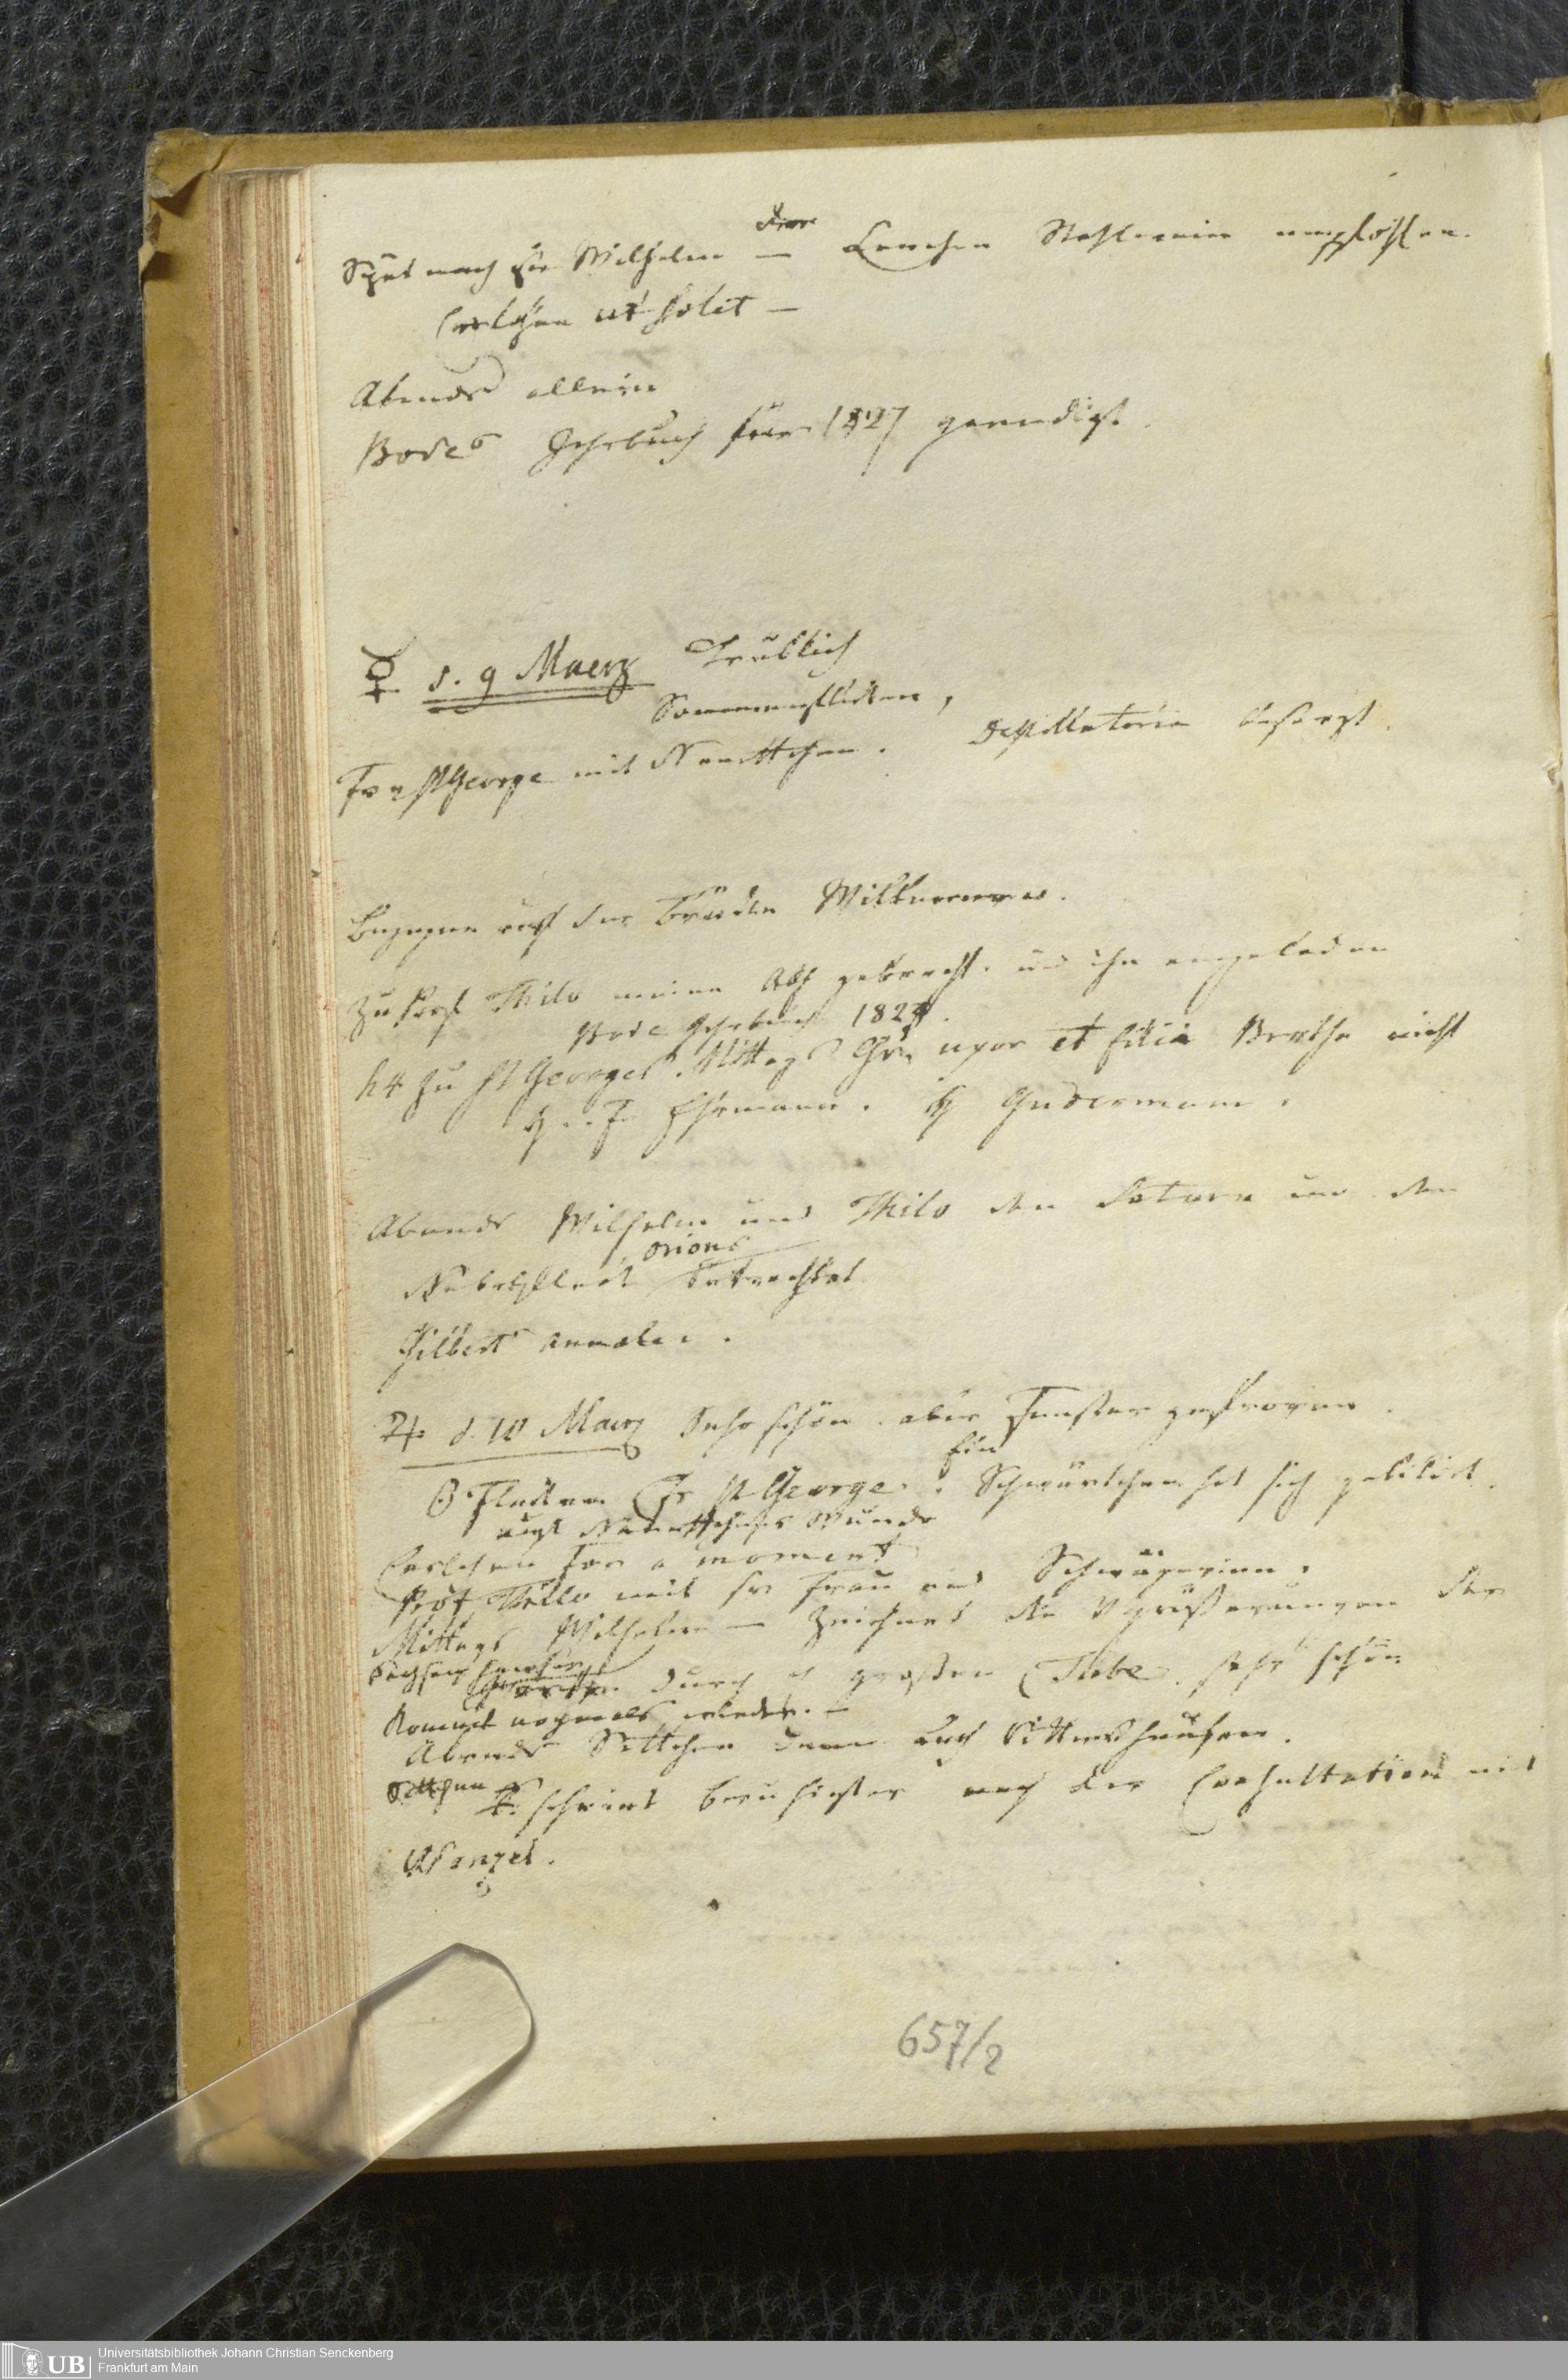 Spät nach zu Wilhelm — Lenchen Stahlwein empfohlen.
Carlchen ut solet —
Abends allein
Bodes Jahrbuch für 1827 geendigt.
☿ d. 9 Maerz Trüblich
Sonnenflecken,
Fr v St George mit Nanettchen. Depillatoria besorgt.
zu Prof Thilo meine Abh gebracht. und ihn eingeladen
Bode Jahrbuch 1827.
h 4 zu St Georges. Mittags uxor et filia Bertha nicht
Ehrmann. Gudermann.
Abends Wilhelm und Thilo den Saturn und den
Orions
Nebelfleck betrachtet
Gilbert Annalen.
♃ d. 10 Maerz Sehr schön. aber Fenster gefroren.
ein
☉ Flecken Fr St George. Schwärtchen hat sich gebildet
auf Nanettchens Wunde
Carlchen for a moment
Prof Thilo mit sr Frau und Schwägerinn.
Mittags Wilhelm — zeichnet die Vergrößerungen der
durch d großen Tubo. sehr schön
Komet nochmals
Abends Settchen dann auch
Settchen scheint beruhigter nach der Consultation mit
Wenzel.
657/2
UB Universitätsbibliothek Johann Christian Senckenberg
Frankfurt am Main